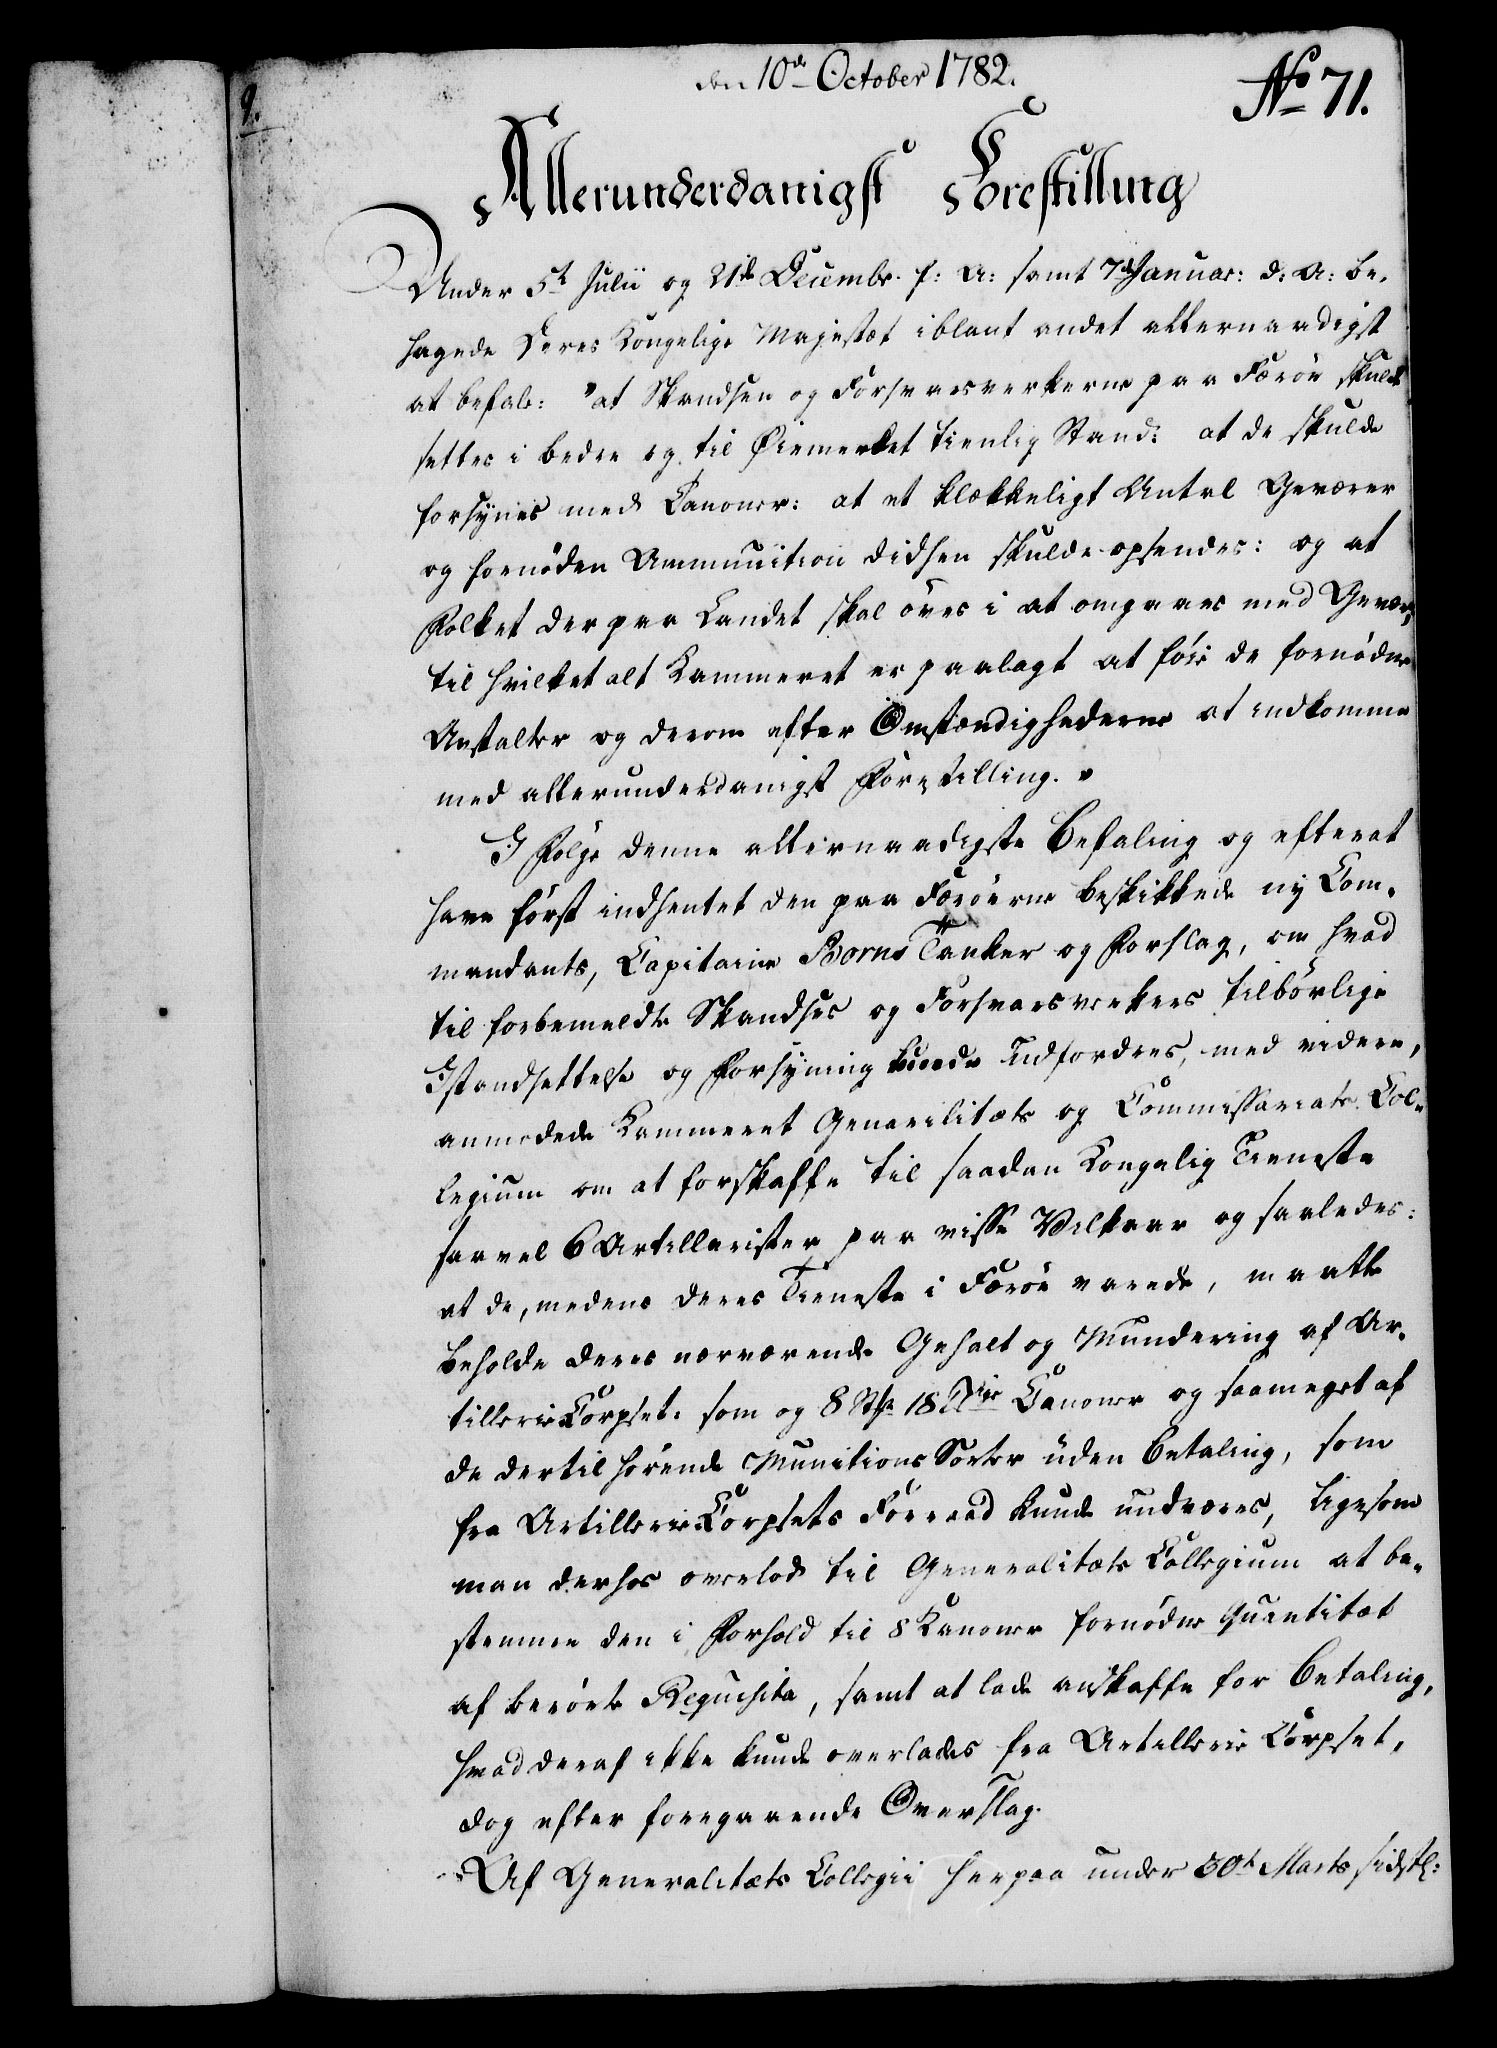 den 10de October 1782.
No 71.
9.
Allerunderdanigst Forestilling
Under 5t Julii og 21de Decembr. f: A: samt 7de Januar: d: A: be-
hagede Deres Kongelige Majestæt iblant andet allernaadigst
at befale: "at Skandsen og Forsvarsverkerne paa Færöe skulde
settes i bedre og til Øiemerket tienlig Stand: at de skulde
forsynes med Canoner: at et klækkeligt Antal Geværer
og fornöden Ammunition didhen skulde opsendes: og at
Folket der paa Landet skal öves i at omgaaes med Gevær,
til hvilket alt Kammeret er paalagt at föie de fornödne
Anstalter og derom efter Omstændighederne at indkomme
med allerunderdanigst Forestilling."
I Fölge denne allernaadigste Befaling og efterat
have först indhentet den paa Færöerne beskikkede ny Com-
mendants, Capitaine Borns Tanker og Forslag, om hvad
til forbemeldte Skandses og Forsvarsverkers tilbörlige
Istandsettelse og Forsyning kunde udfordres, med videre,
anmodede Kammeret Generalitæts og Commissariats Col-
legium om at forskaffe til saadan Kongelig Tieneste
saavel 6 Artillerister paa visse Vilkaar og saaledes:
at de, medens deres Tieneste i Færöe varede, maatte
beholde deres nærværende Gehalt og Mundering af Ar-
tillerie Corpset. som og 8 Stk 18 ℔ige Canoner og saameget af
de dertil hörende Munitions Sorter uden Betaling, som
fra Artillerie Corpsets Forraad kunde undværes, ligesom
man derhos overlod til Generalitæts Collegium at be-
stemme den i Forhold til 8 Kanoner fornödne Quantitæt
af berörte Requisita, samt at lade anskaffe for Betaling,
hvad deraf ikke kunde overlades fra Artillerie Corpset,
dog efter foregaaende Overslag.
Af Generalitæts Collegii herpaa under 30t Marts sidstl: